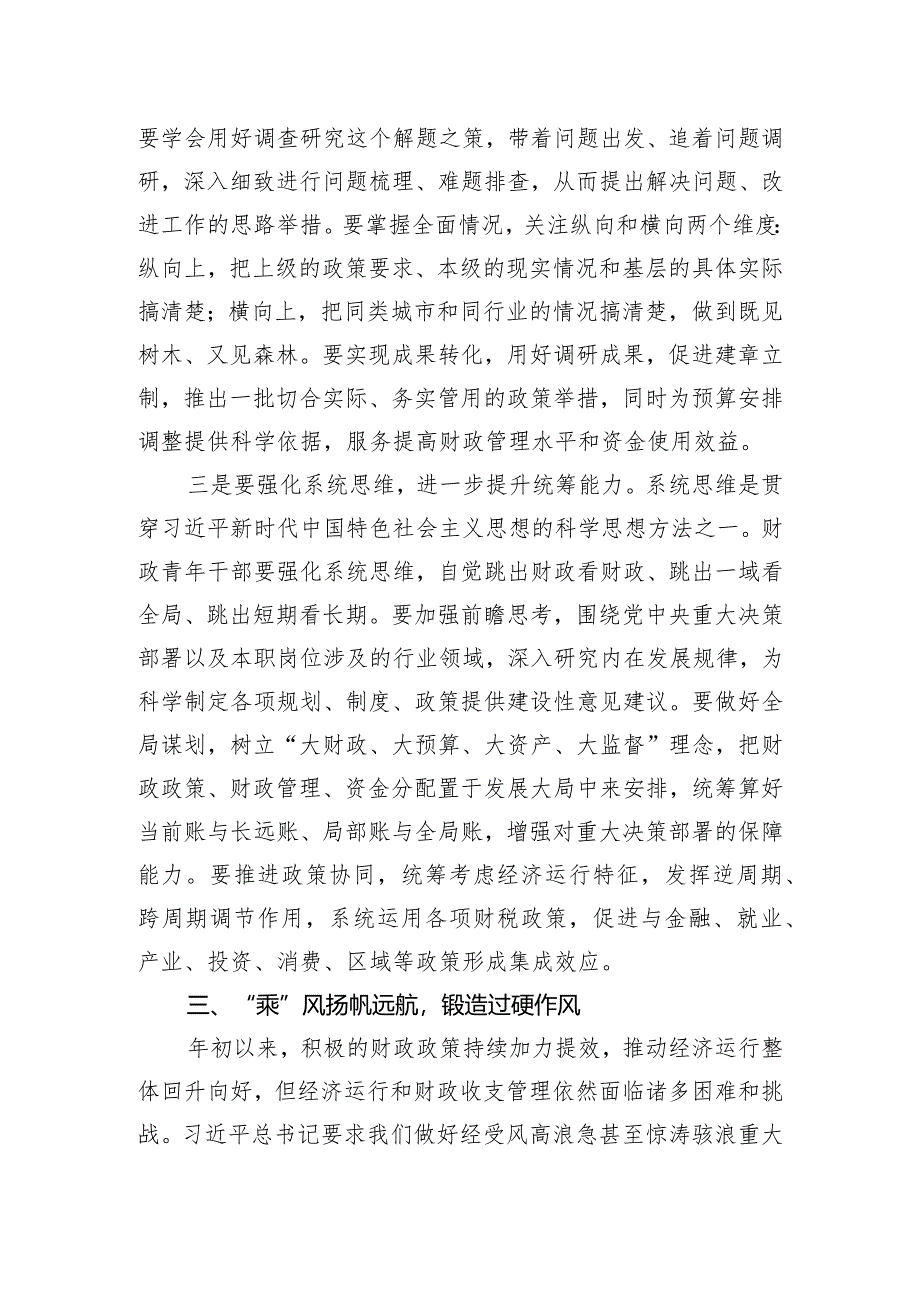 要学会用好调查研究这个解题之策，带着问题出发、追着问题调
研，深入细致进行问题梳理、难题排查，从而提出解决问题、改
进工作的思路举措。要掌握全面情况，关注纵向和横向两个维度：
纵向上，把上级的政策要求、本级的现实情况和基层的具体实际
搞清楚；横向上，把同类城市和同行业的情况搞清楚，做到既见
树木、又见森林。要实现成果转化，用好调研成果，促进建章立
制，推出一批切合实际、务实管用的政策举措，同时为预算安排
调整提供科学依据，服务提高财政管理水平和资金使用效益。
三是要强化系统思维，进一步提升统筹能力。系统思维是贯
穿习近平新时代中国特色社会主义思想的科学思想方法之一。财
政青年干部要强化系统思维，自觉跳出财政看财政、跳出一域看
全局、跳出短期看长期。要加强前瞻思考，围绕党中央重大决策
部署以及本职岗位涉及的行业领域，深入研究内在发展规律，为
科学制定各项规划、制度、政策提供建设性意见建议。要做好全
局谋划，树立“大财政、大预算、大资产、大监督”理念，把财
政政策、财政管理、资金分配置于发展大局中来安排，统筹算好
当前账与长远账、局部账与全局账，增强对重大决策部署的保障
能力。要推进政策协同，统筹考虑经济运行特征，发挥逆周期、
跨周期调节作用，系统运用各项财税政策，促进与金融、就业、
产业、投资、消费、区域等政策形成集成效应。
三、“乘”风扬帆远航，锻造过硬作风
年初以来，积极的财政政策持续加力提效，推动经济运行整
体回升向好，但经济运行和财政收支管理依然面临诸多困难和挑
战。习近平总书记要求我们做好经受风高浪急甚至惊涛骇浪重大